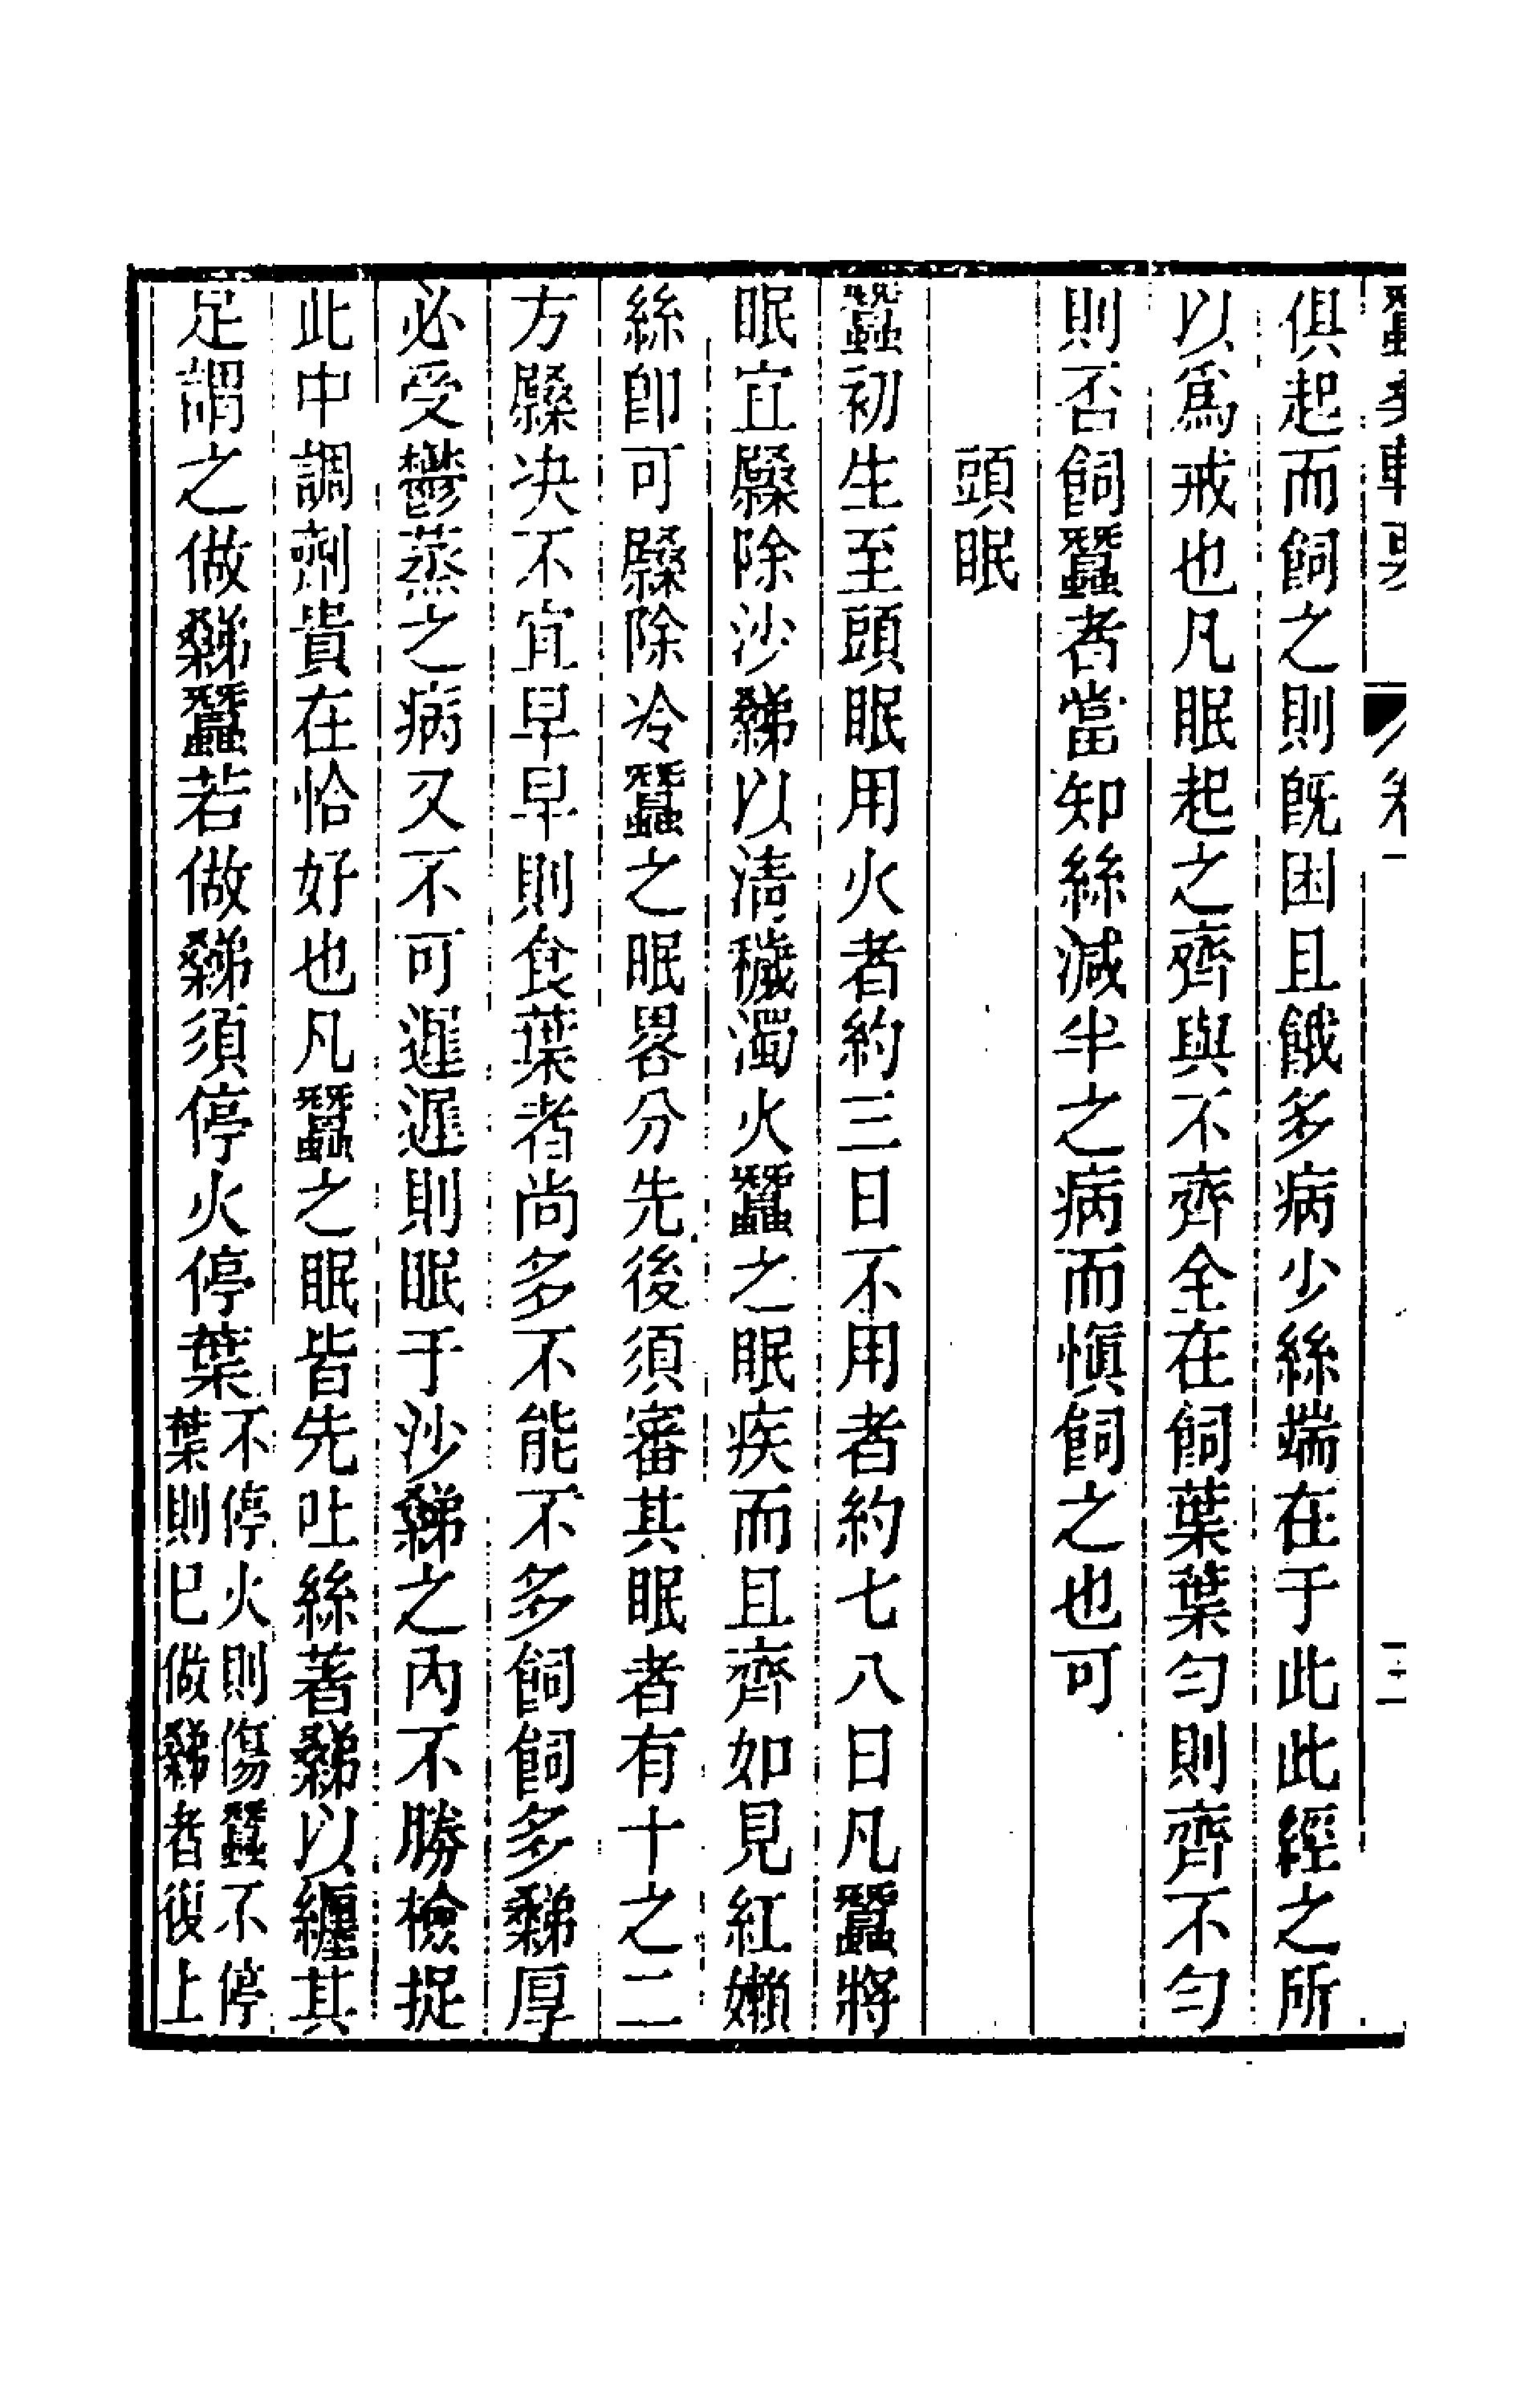 蠶桑輯要 卷一
俱起而飼之則旣困且餓多病少絲端在于此此經之所
以爲戒也凡眠起之齊與不齊全在飼葉葉勻則齊不勻
則否飼蠶者當知絲減半之病而愼飼之也可
頭眠
蠶初生至頭眠用火者約三日不用者約七八日凡蠶將
眠宜除沙以淸穢濁火蠶之眠疾而且齊如見紅嫩
絲卽可除冷蠶之眠畧分先後須審其眠者有十之二
方決不宜早早則食葉者尚多不能不多飼飼多多厚
必受鬱蒸之病又不可遲遲則眠于沙之內不勝檢捉
此中調劑貴在恰好也凡蠶之眠皆先吐絲著以纏其
足謂之做蠶若做須停火停葉不停火則傷蠶不停
葉則已做者復上